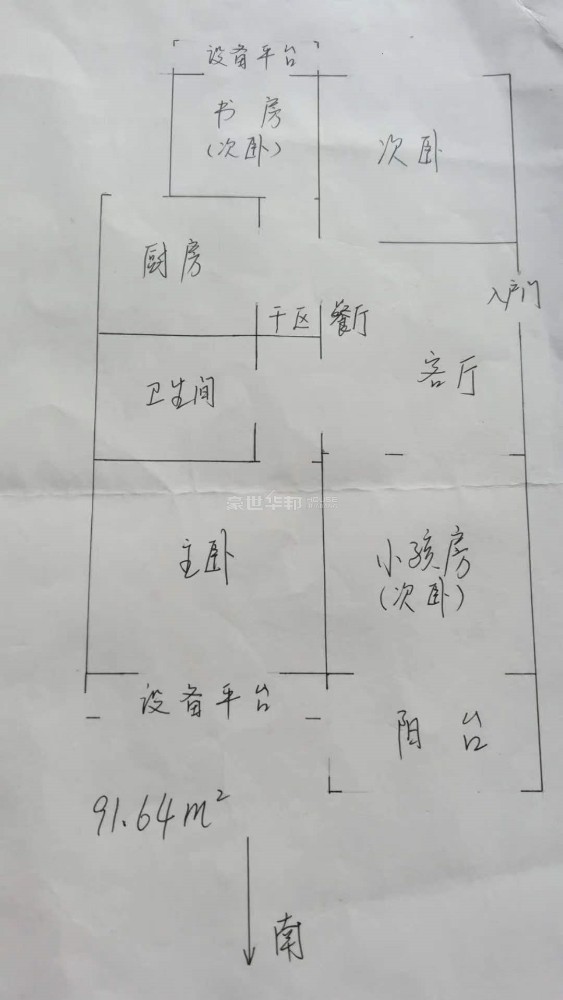 设备平台
书房
(次卧)
次卧
厨房
入户门
干区
餐厅
客厅
卫生间
豪世华邦
主卧
小孩房
(次卧)
设备平台
阳台
91.64m²
南